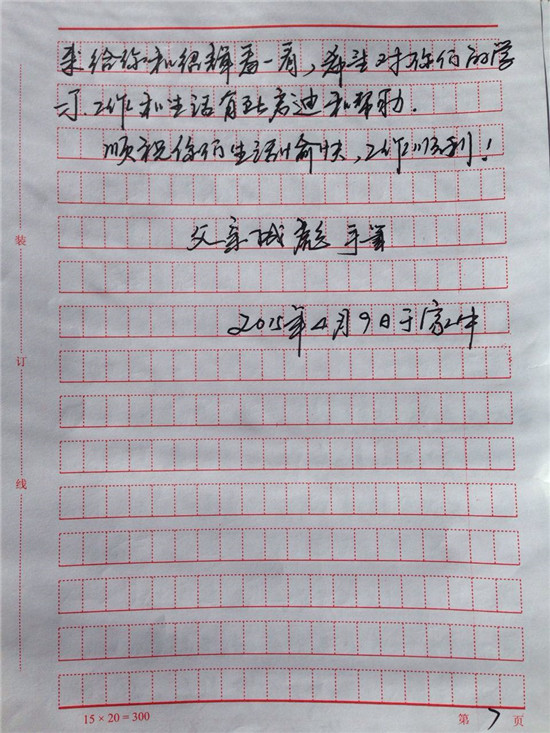 来给你和绍辉看一看，希望对你们的学
习、工作和生活有些启迪和帮助.
顺祝你们生活愉快，工作顺利！
父亲 手笔
2015年4月9日于
装
订
线
15×20=300
第 7 页